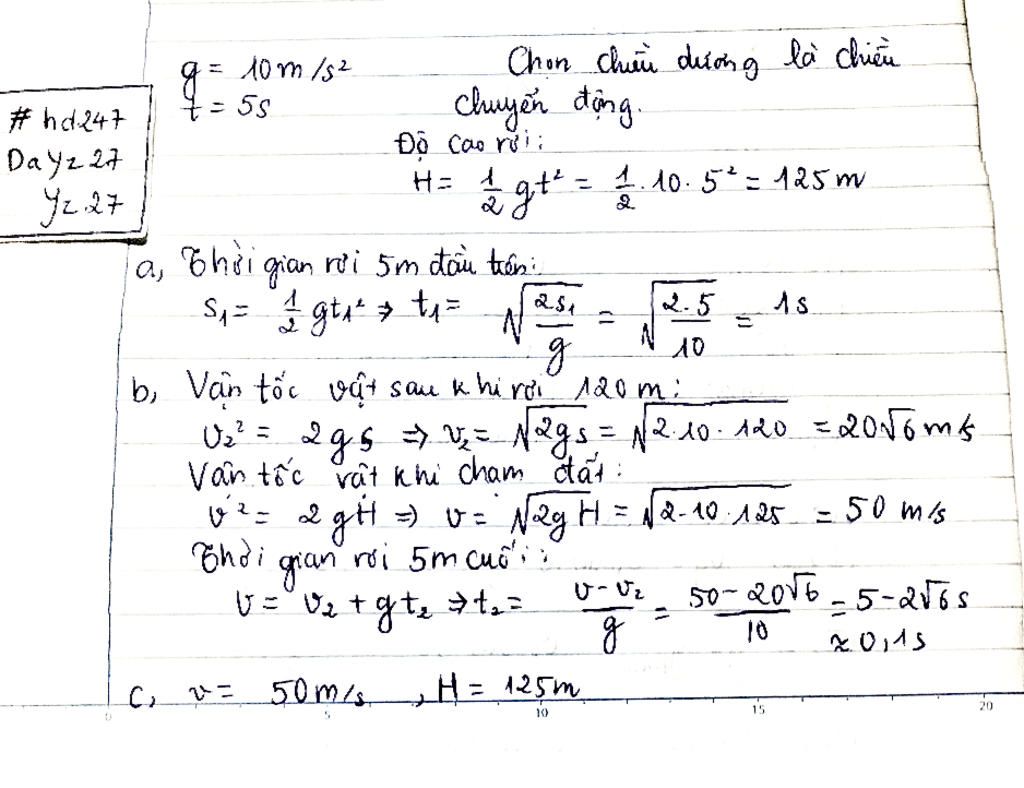 g = 10m/s²
t = 5s
Chọn chiều dương là chiều
chuyển động.
#hd247
DaYz27
Yz.27
Độ cao rơi:
H = 1/2 gt² = 1/2 . 10 . 5² = 125m
a, Thời gian rơi 5m đầu tiên:
S₁ = 1/2 gt₁² ⇒ t₁ = √(2s₁/g) = √(2.5/10) = 1s
b, Vận tốc vật sau khi rơi 120m:
v₂² = 2gs ⇒ v₂ = √(2gs) = √(2.10.120) = 20√6 m/s
Vận tốc vật khi chạm đất:
v² = 2gH ⇒ v = √(2gH) = √(2.10.125) = 50 m/s
Thời gian rơi 5m cuối:
v = v₂ + gt₂ ⇒ t₂ = (v-v₂)/g = (50-20√6)/10 = 5-2√6 s
≈ 0,1s
c, v = 50m/s , H = 125m
0 5 10 15 20